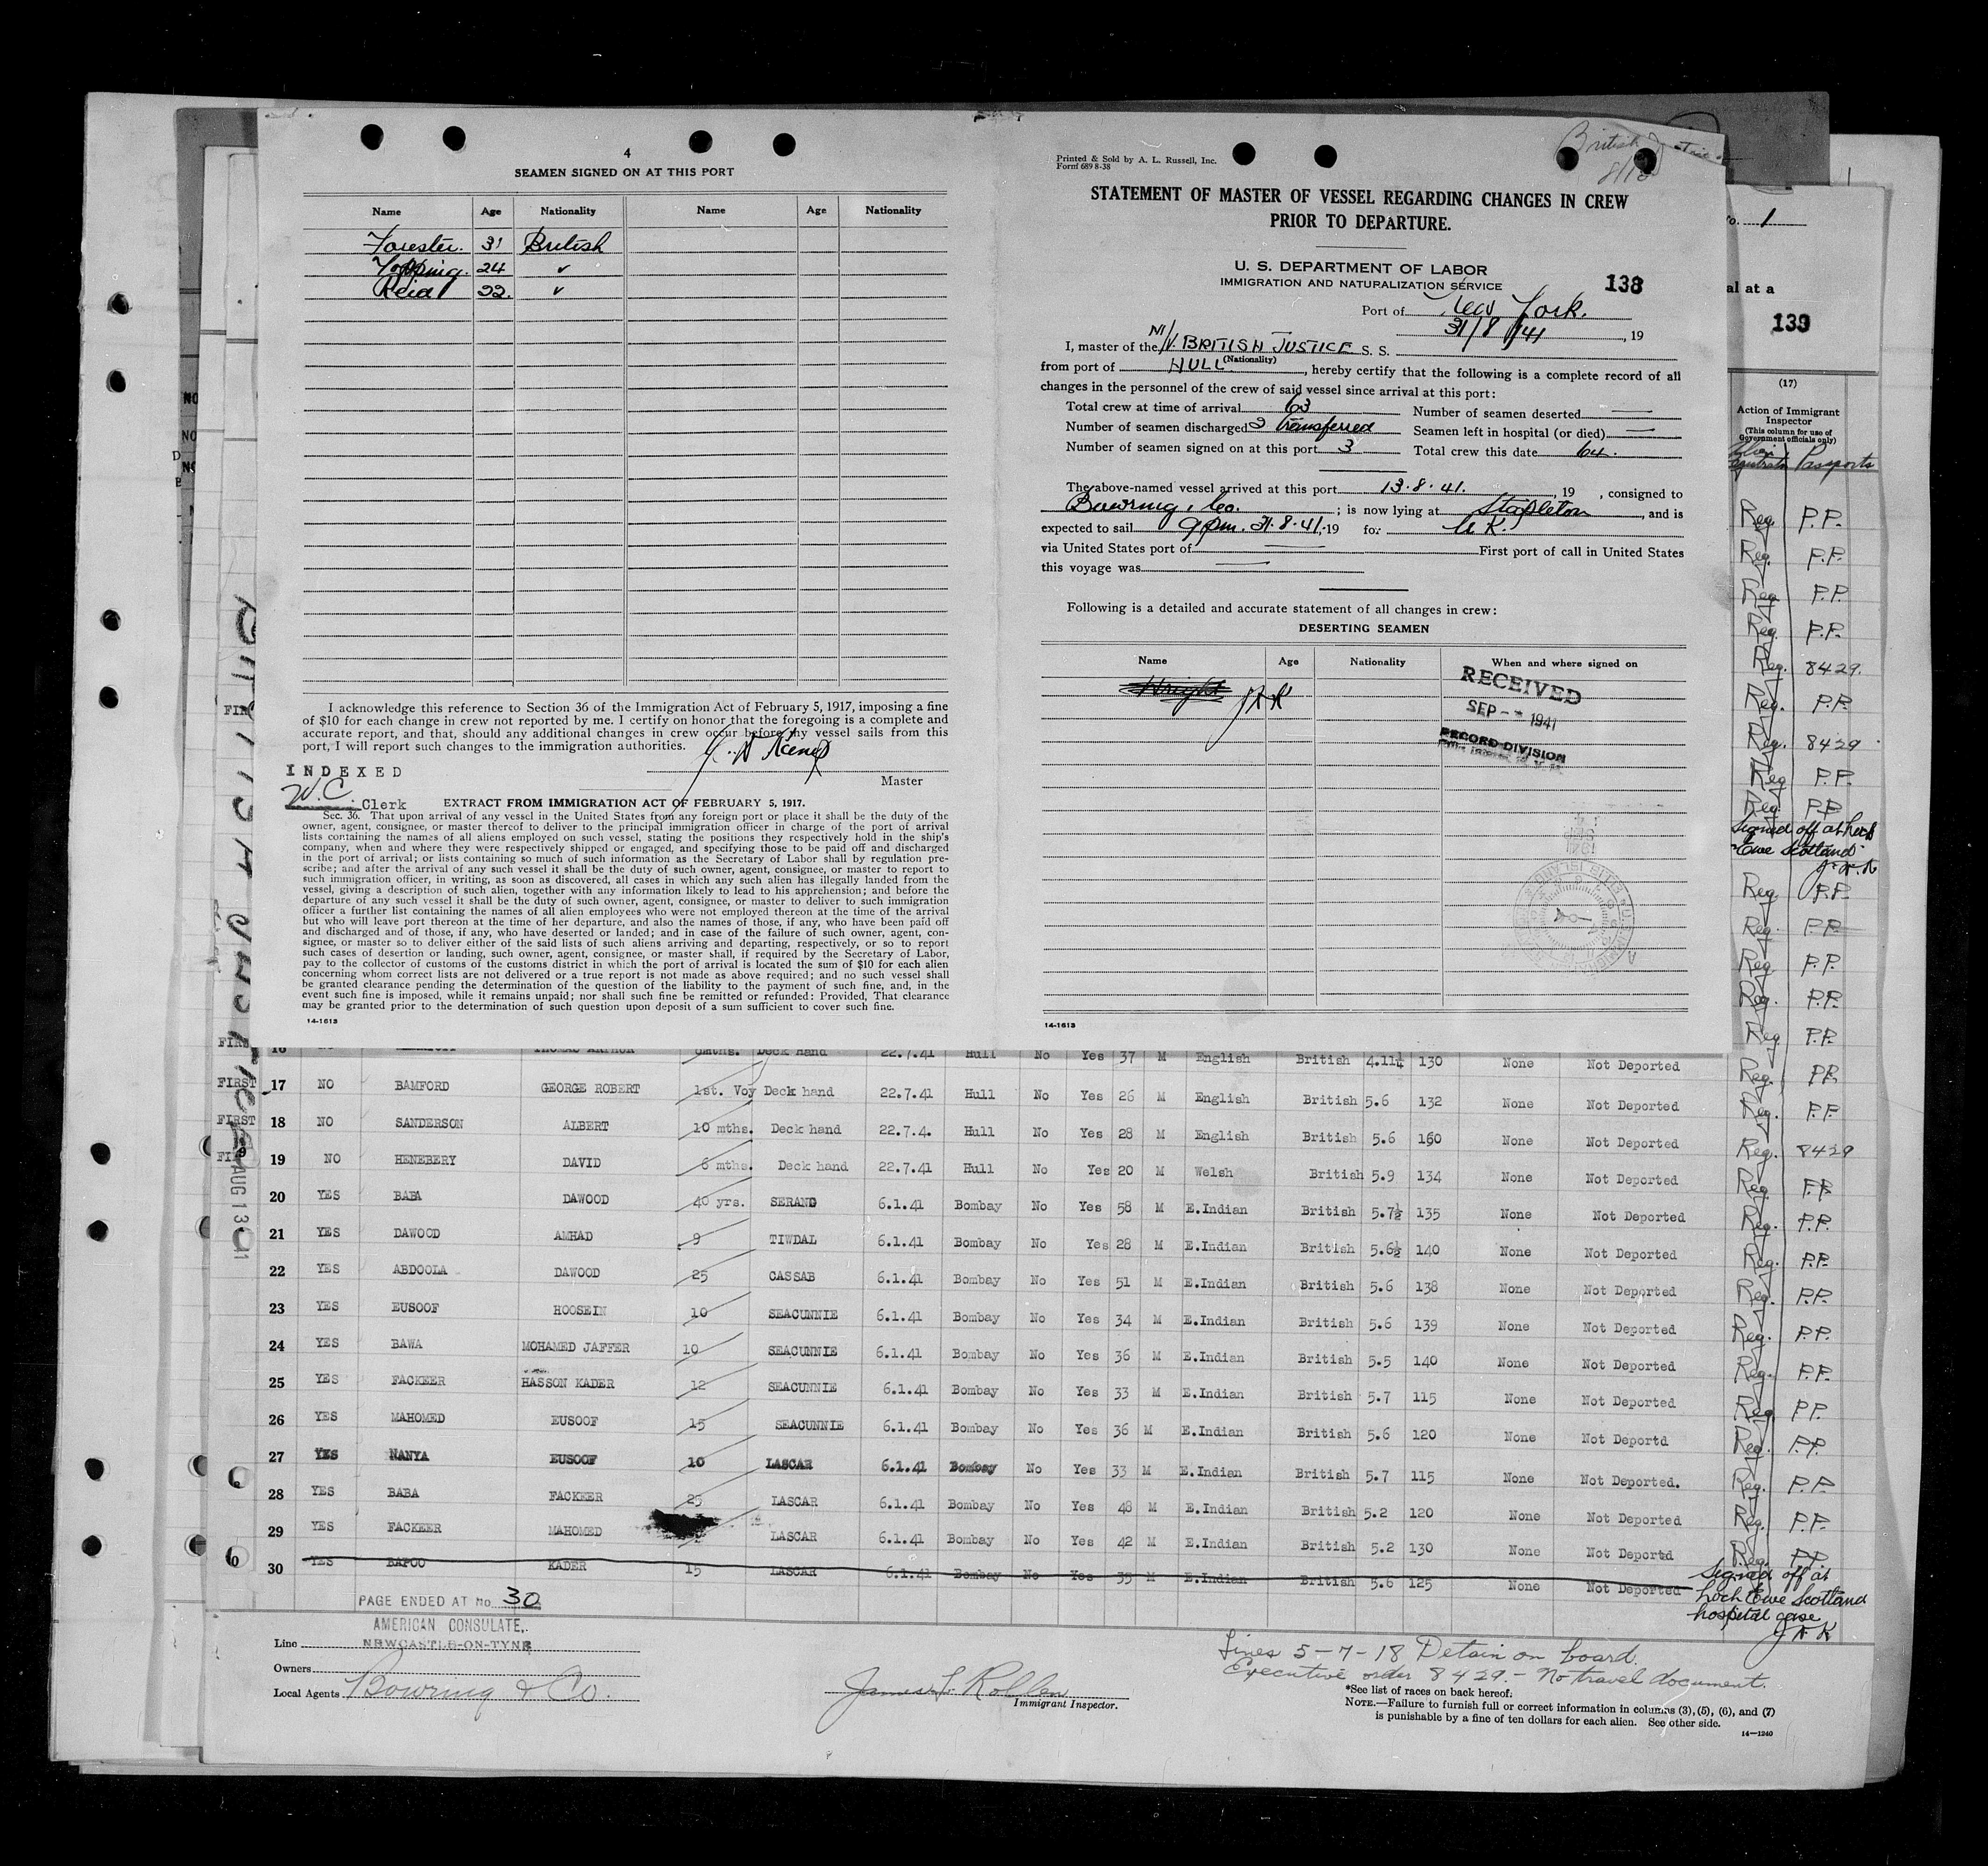 4
SEAMEN SIGNED ON AT THIS PORT
Name Age Nationality Name Age Nationality
Forester. 31 British
Topping. 24 ✓
Reid 22. ✓
I acknowledge this reference to Section 36 of the Immigration Act of February 5, 1917, imposing a fine
of $10 for each change in crew not reported by me. I certify on honor that the foregoing is a complete and
accurate report, and that, should any additional changes in crew occur before my vessel sails from this
port, I will report such changes to the immigration authorities.
Master
INDEXED
W.C. Clerk
EXTRACT FROM IMMIGRATION ACT OF FEBRUARY 5, 1917.
Sec. 36. That upon arrival of any vessel in the United States from any foreign port or place it shall be the duty of the
owner, agent, consignee, or master thereof to deliver to the principal immigration officer in charge of the port of arrival
lists containing the names of all aliens employed on such vessel, stating the positions they respectively hold in the ship's
company, when and where they were respectively shipped or engaged, and specifying those to be paid off and discharged
in the port of arrival; or lists containing so much of such information as the Secretary of Labor shall by regulation pre-
scribe; and after the arrival of any such vessel it shall be the duty of such owner, agent, consignee, or master to report to
such immigration officer, in writing, as soon as discovered, all cases in which any such alien has illegally landed from the
vessel, giving a description of such alien, together with any information likely to lead to his apprehension; and before the
departure of any such vessel it shall be the duty of such owner, agent, consignee, or master to deliver to such immigration
officer a further list containing the names of all alien employees who were not employed thereon at the time of the arrival
but who will leave port thereon at the time of her departure, and also the names of those, if any, who have been paid off
and discharged and of those, if any, who have deserted or landed; and in case of the failure of such owner, agent, con-
signee, or master so to deliver either of the said lists of such aliens arriving and departing, respectively, or so to report
such cases of desertion or landing, such owner, agent, consignee, or master shall, if required by the Secretary of Labor,
pay to the collector of customs of the customs district in which the port of arrival is located the sum of $10 for each alien
concerning whom correct lists are not delivered or a true report is not made as above required; and no such vessel shall
be granted clearance pending the determination of the question of the liability to the payment of such fine, and, in the
event such fine is imposed, while it remains unpaid; nor shall such fine be remitted or refunded: Provided, That clearance
may be granted prior to the determination of such question upon deposit of a sum sufficient to cover such fine.
14-1613
Printed & Sold by A. L. Russell, Inc.
Form 689 8-38
British
STATEMENT OF MASTER OF VESSEL REGARDING CHANGES IN CREW
PRIOR TO DEPARTURE.
U. S. DEPARTMENT OF LABOR
IMMIGRATION AND NATURALIZATION SERVICE
138
Port of New York.
31/8/41, 19
I, master of the M/V. BRITISH JUSTICE S. S.
(Nationality)
from port of HULL, hereby certify that the following is a complete record of all
changes in the personnel of the crew of said vessel since arrival at this port:
Total crew at time of arrival 63 Number of seamen deserted —
Number of seamen discharged 2 transferred Seamen left in hospital (or died) —
Number of seamen signed on at this port 3 Total crew this date 64.
The above-named vessel arrived at this port 13.8.41., 19 , consigned to
Bowring & Co. ; is now lying at Stapleton, and is
expected to sail 9pm. 31.8.41, 19 for U.K.
via United States port of — First port of call in United States
this voyage was —
Following is a detailed and accurate statement of all changes in crew:
DESERTING SEAMEN
Name Age Nationality When and where signed on
Wright
RECEIVED
SEP - 1941
RECORD DIVISION
14-1613
1
al at a
139
(17)
Action of Immigrant
Inspector
(This column for use of
Government officials only)
Passports
Reg. P.P.
Reg. P.P.
Reg. P.P.
Reg. P.P.
Reg. 8429.
Reg. P.P.
Reg. 8429
Reg P.P.
Reg. P.P.
Signed off at Loch
Ewe Scotland
Reg P.P.
Reg. P.P.
Reg P.P.
Reg. P.P.
Reg P.P.
Reg. P.P.
Reg. P.P.
Reg. 8429
Reg. P.P.
Reg. P.P.
Reg. P.P.
Reg. P.P.
Reg. P.P.
Reg. P.P.
Reg P.P.
Reg. P.P.
Reg. P.P.
Reg. P.P.
Reg. P.P.
Signed off at
Loch Ewe Scotland
hospital case
BRITISH JUSTICE
AUG 13
FIRST 16 THOMAS ARTHUR 6mths. Deck hand 22.7.41 Hull No Yes 37 M English British 4.11¼ 130 None Not Deported
FIRST 17 NO BAMFORD GEORGE ROBERT 1st. Voy Deck hand 22.7.41 Hull No Yes 26 M English British 5.6 132 None Not Deported
FIRST 18 NO SANDERSON ALBERT 10 mths. Deck hand 22.7.4. Hull No Yes 28 M English British 5.6 160 None Not Deported
19 NO HENEBERY DAVID 6 mths. Deck hand 22.7.41 Hull No Yes 20 M Welsh British 5.9 134 None Not Deported
20 YES BABA DAWOOD 40 yrs. SERANG 6.1.41 Bombay No Yes 58 M E.Indian British 5.7½ 135 None Not Deported
21 YES DAWOOD AMHAD 9 TIWDAL 6.1.41 Bombay No Yes 28 M E.Indian British 5.6½ 140 None Not Deported
22 YES ABDOOLA DAWOOD 25 CASSAB 6.1.41 Bombay No Yes 51 M E.Indian British 5.6 138 None Not Deported
23 YES EUSOOF HOOSEIN 10 SEACUNNIE 6.1.41 Bombay No Yes 34 M E.Indian British 5.6 139 None Not Deported
24 YES BAWA MOHAMED JAFFER 10 SEACUNNIE 6.1.41 Bombay No Yes 36 M E.Indian British 5.5 140 None Not Deported
25 YES FACKEER HASSON KADER 12 SEACUNNIE 6.1.41 Bombay No Yes 33 M E.Indian British 5.7 115 None Not Deported
26 YES MAHOMED EUSOOF 15 SEACUNNIE 6.1.41 Bombay No Yes 36 M E.Indian British 5.6 120 None Not Deportd
27 YES NANYA EUSOOF 10 LASCAR 6.1.41 Bombay No Yes 33 M E.Indian British 5.7 115 None Not Deported.
28 YES BABA FACKEER 25 LASCAR 6.1.41 Bombay No Yes 48 M E.Indian British 5.2 120 None Not Deported
29 YES FACKEER MAHOMED LASCAR 6.1.41 Bombay No Yes 42 M E.Indian British 5.2 130 None Not Deportd
30 YES BAPOO KADER 15 LASCAR 6.1.41 Bombay No Yes 35 M E.Indian British 5.6 125 None Not Deported
PAGE ENDED AT No. 30
AMERICAN CONSULATE,
NEWCASTLE-ON-TYNE
Line
Owners
Local Agents Bowring & Co.
Immigrant Inspector.
Lines 5-7-18 Detain on board.
Executive order 8429. - No travel document.
*See list of races on back hereof.
NOTE.—Failure to furnish full or correct information in columns (3), (5), (6), and (7)
is punishable by a fine of ten dollars for each alien. See other side.
14-1240